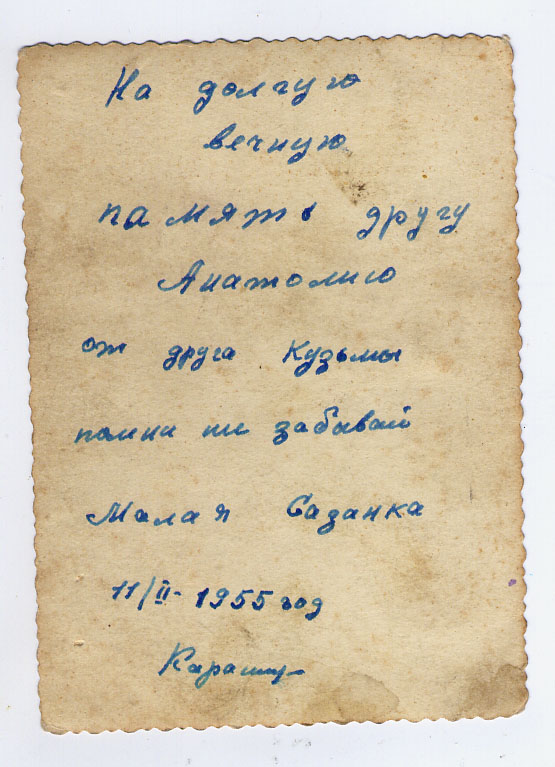 На долгую
вечную
память другу
Анатолию
от друга Кузьмы
помни не забывай
Малая Саданка
11/II- 1955 год